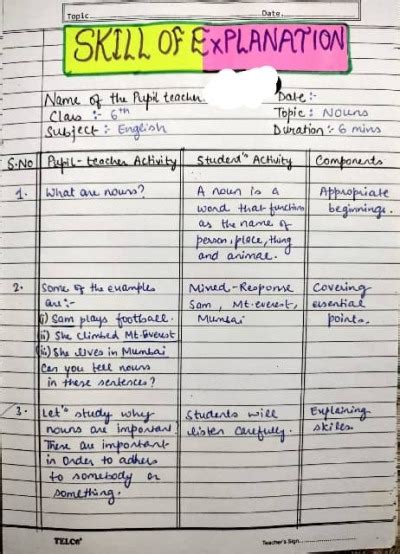 Topic
Date
SKILL OF ExPLANATION
Name of the Pupil teacher.
Date :-
Class :- 6th
Topic : Nouns
Subject :- English
Duration :- 6 mins
S.No
Pupil-teacher Activity
Student's Activity
Components
1.
What are nouns?
A noun is a
word that functions
as the name of
person, place, thing
and animal.
Appropriate
beginnings.
2.
Some of the examples
are:-
i) Sam plays football.
ii) She climbed Mt. Everest
iii) She lives in Mumbai
Can you tell nouns
in these sentences?
Mixed-Response
Sam, Mt. everest,
Mumbai
Covering
essential
points.
3.
Let's study why
nouns are important
There are important
in order to adhere
to somebody or
something.
Students will
listen carefully.
Explaining
skills.
TELCO
Teacher's Sign